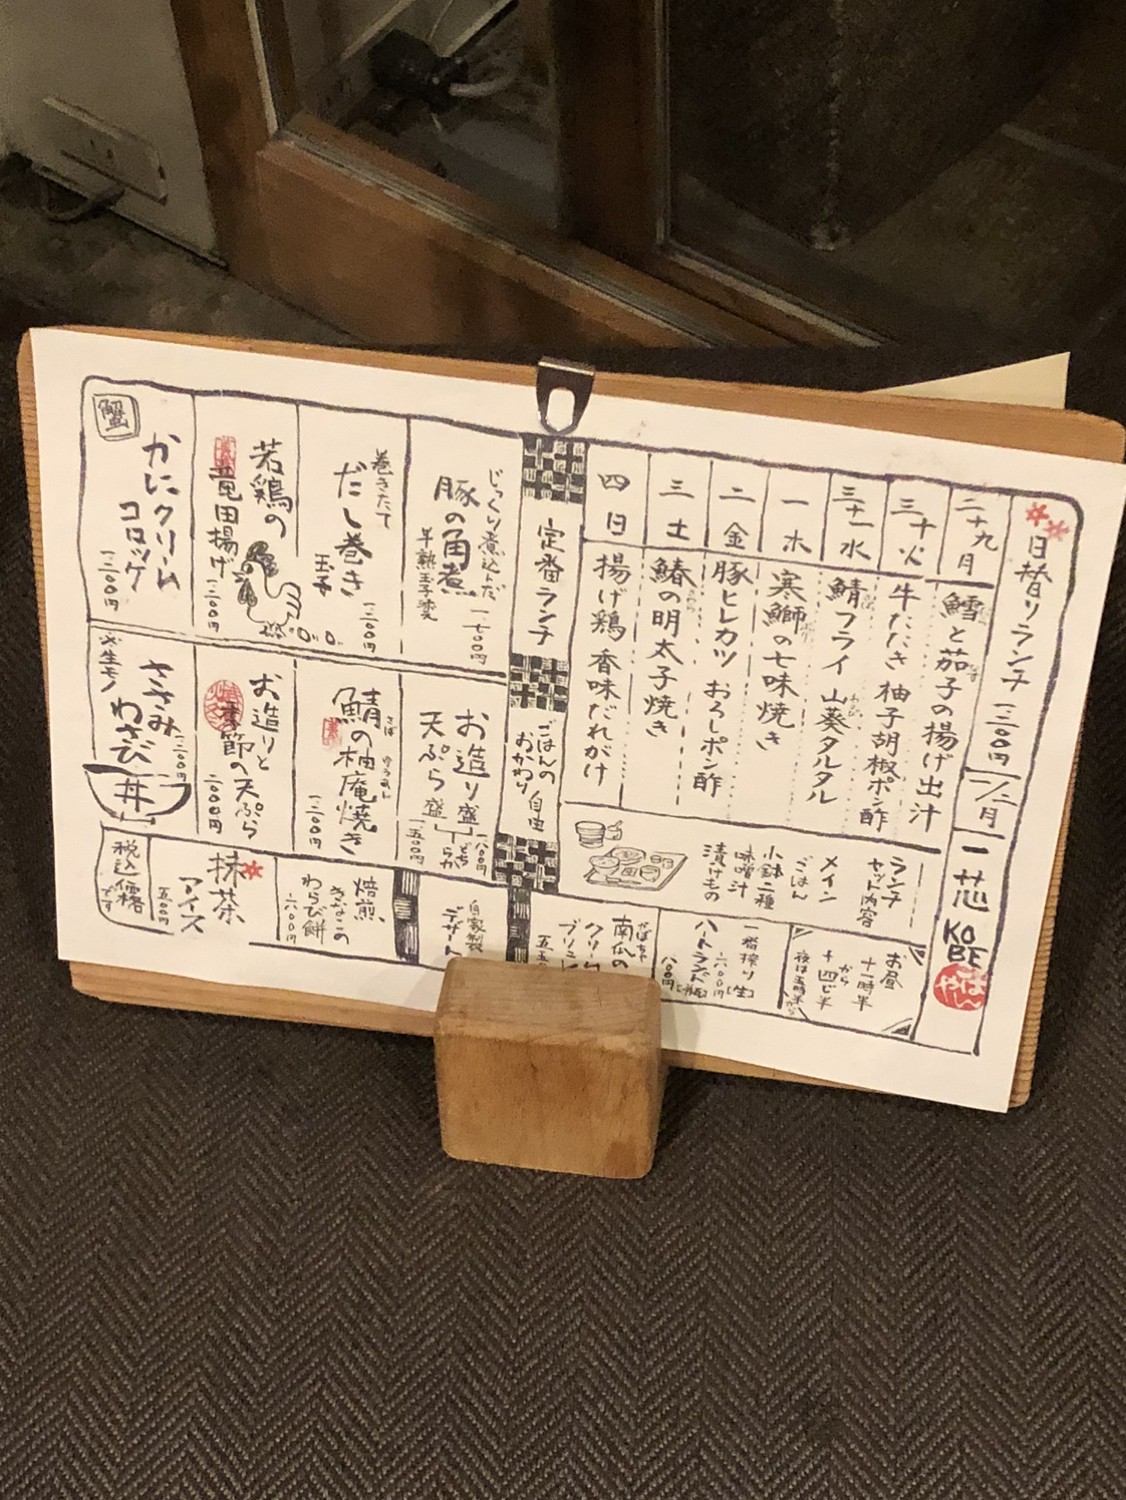 日替りランチ 一二〇〇円
一/二月
一芯
KOBE
ごはんや
二十九 月 鱈と茄子の揚げ出汁
三十 火 牛たたき 柚子胡椒ポン酢
三十一 水 鯖フライ 山葵タルタル
一 木 寒鰤の七味焼き
二 金 豚ヒレカツ おろしポン酢
三 土 鰆の明太子焼き
四 日 揚げ鶏 香味だれがけ
ランチセット内容
メイン
ごはん
小鉢二種
味噌汁
漬けもの
お昼
十一時半
から
十四じ半
夜は五時半から
一番搾り[生]
六〇〇円
ハートランド
八〇〇円
定番ランチ
ごはんの
おかわり
自由
じっくり煮込んだ
豚の角煮
半熟玉子
一七〇〇円
巻きたて
だし巻き
玉子
一二〇〇円
若鶏の
竜田揚げ
一二〇〇円
蟹
かにクリーム
コロッケ
一二〇〇円
お造り盛
天ぷら盛
どちらか
一八〇〇円
一五〇〇円
鯖の柚庵焼き
さば
ゆうあん
一二〇〇円
お造りと
季節の天ぷら
二〇〇〇円
生モノ
ささみ
わさび
丼
一二〇〇円
自家製
デザート
かぼちゃ
南瓜の
クリーム
ブリュレ
焙煎
きなこの
わらび餅
六〇〇円
抹茶
アイス
五〇〇円
税込価格
です